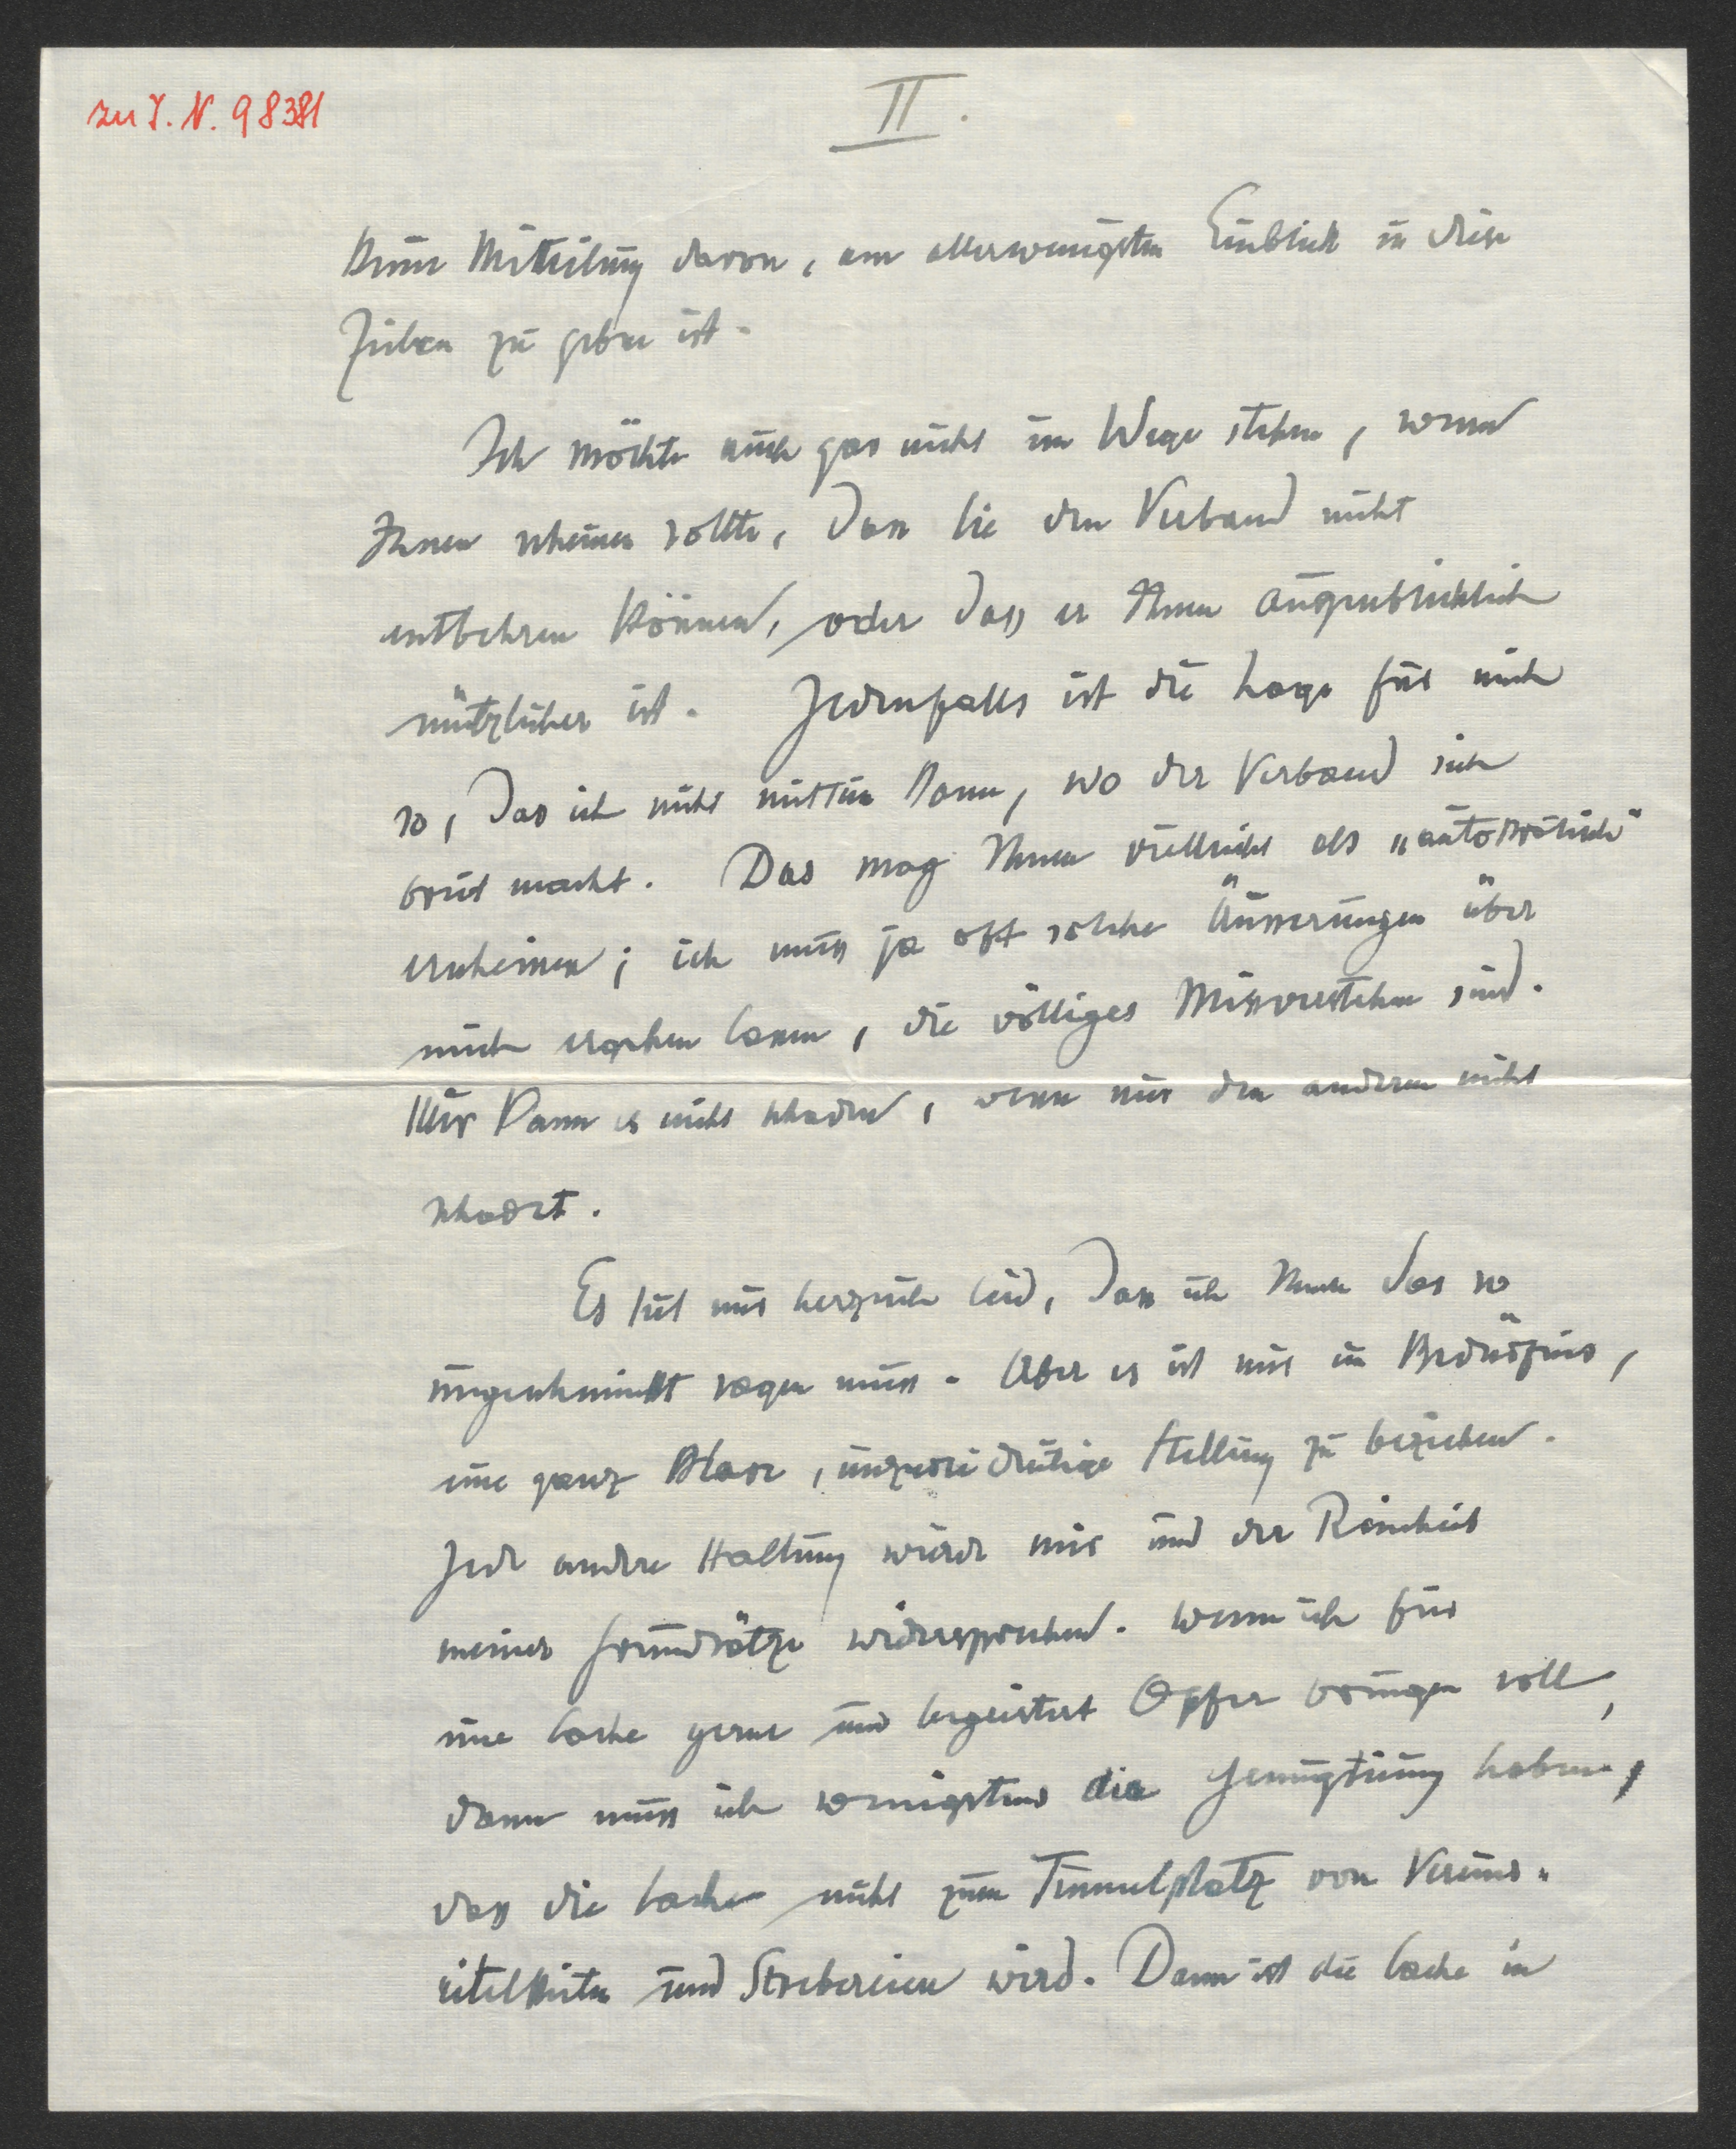 zu I. N. 98381
II.
keine Mitteilung davon, am allerwenigsten Einblick in diese
zu geben ist.
Ich möchte auch gar nicht im Wege stehen, wenn
Ihnen scheinen sollte, dass Sie den Verband nicht
entbehren können, oder dass er Ihnen augenblicklich
nützlicher ist. Jedenfalls ist die Lage für mich
so, dass ich nicht mittun kann, wo der Verband sich
breit macht. Das mag Ihnen vielleicht als „autokratisch"
erscheinen; ich muss ja oft solche Äusserungen über
mich ergehen lassen, die völliges Missverstehen sind.
Mir kann es nicht schaden, wenn nur den anderen nicht
schadet.
Es tut mir herzlich leid, dass ich Ihnen das so
ungeschminkt sagen muss. Aber es ist mir ein Bedürfnis,
eine ganz klare, unzweideutige Stellung zu beziehen.
Jede andere Haltung würde mir und der Reinheit
meiner Grundsätze widersprechen. Wenn ich für
eine Sache gerne und begeistert Opfer bringen soll,
dann muss ich wenigstens die Genugtuung haben,
dass die Sache nicht zum Tummelplatz von Vereins-
eitelkeiten und Strebereien wird. Dann ist die Sache in